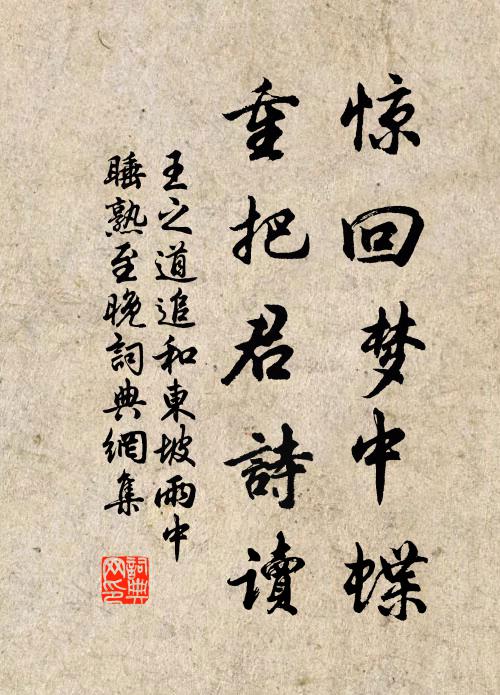 惊回梦中蝶
重把君詩读
王之道追和東坡雨中
睡熟至晚詞典網集
詞典网印